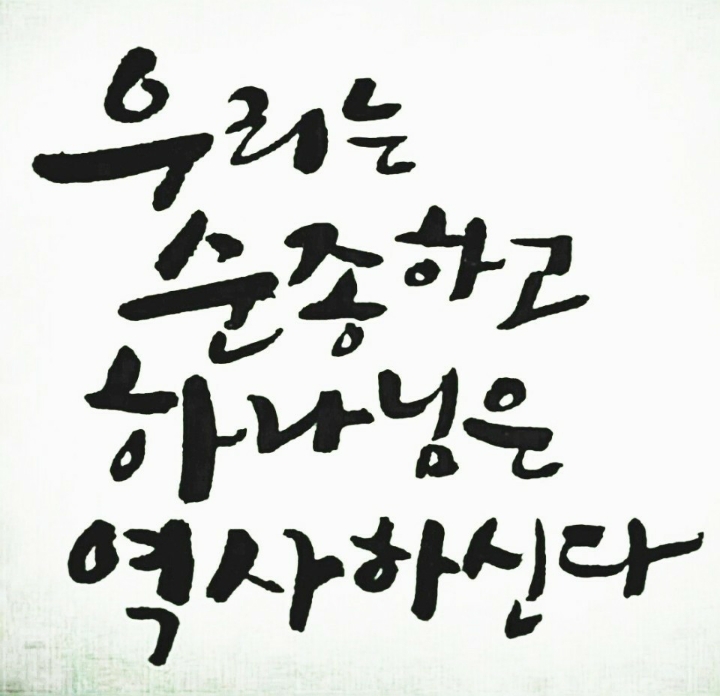 우리는
순종하고
하나님은
역사하신다